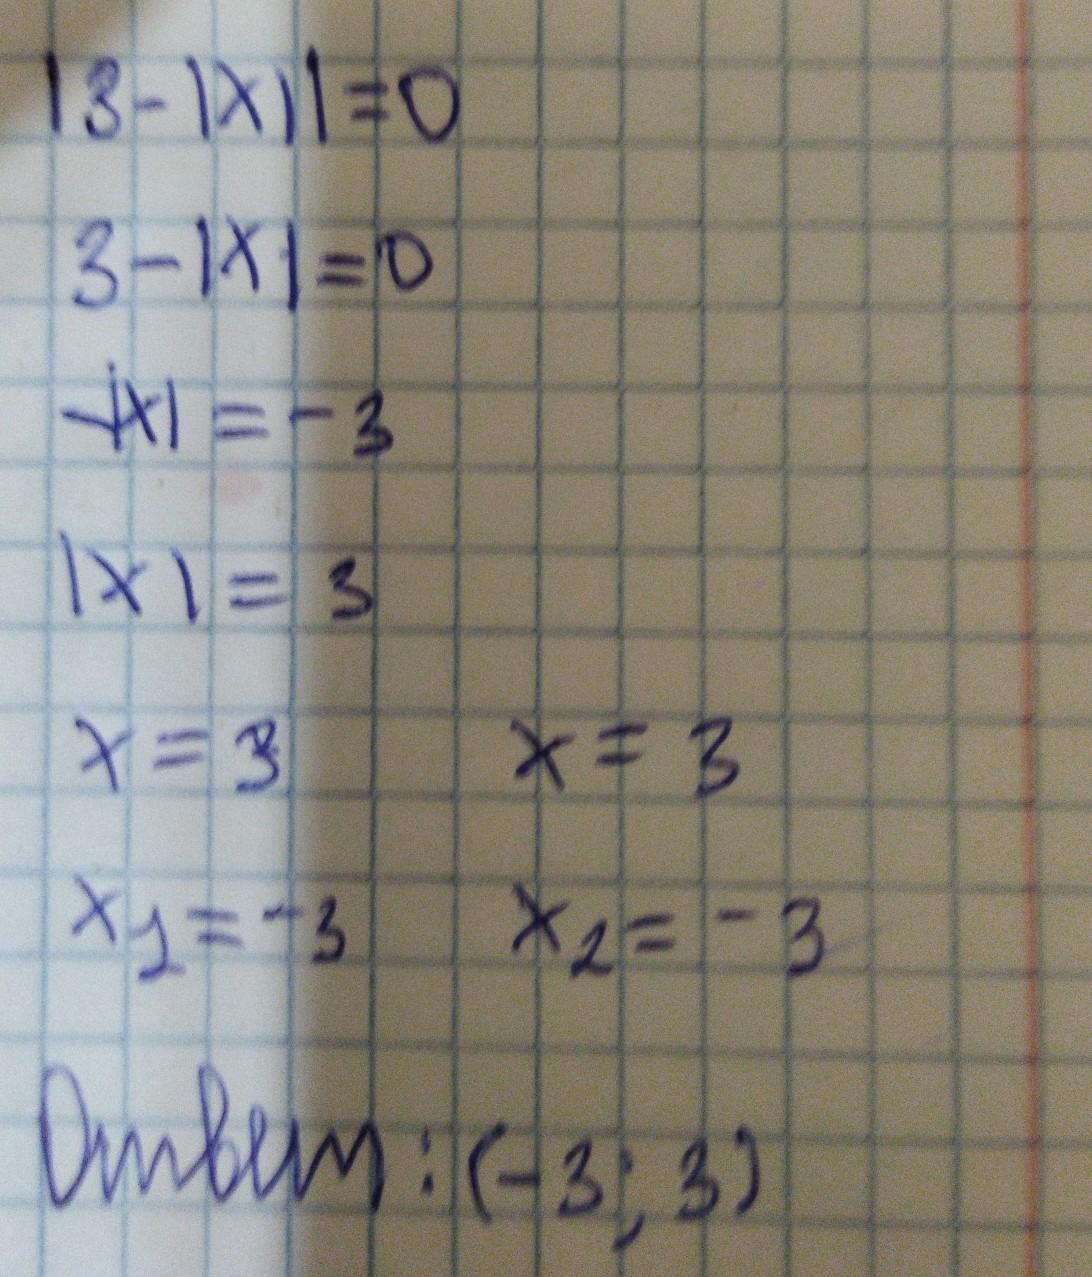 |3-|x||=0
3-|x|=0
-|x|=-3
|x|=3
x=3 x=3
x₁=-3 x₂=-3
Ответ: (-3; 3)